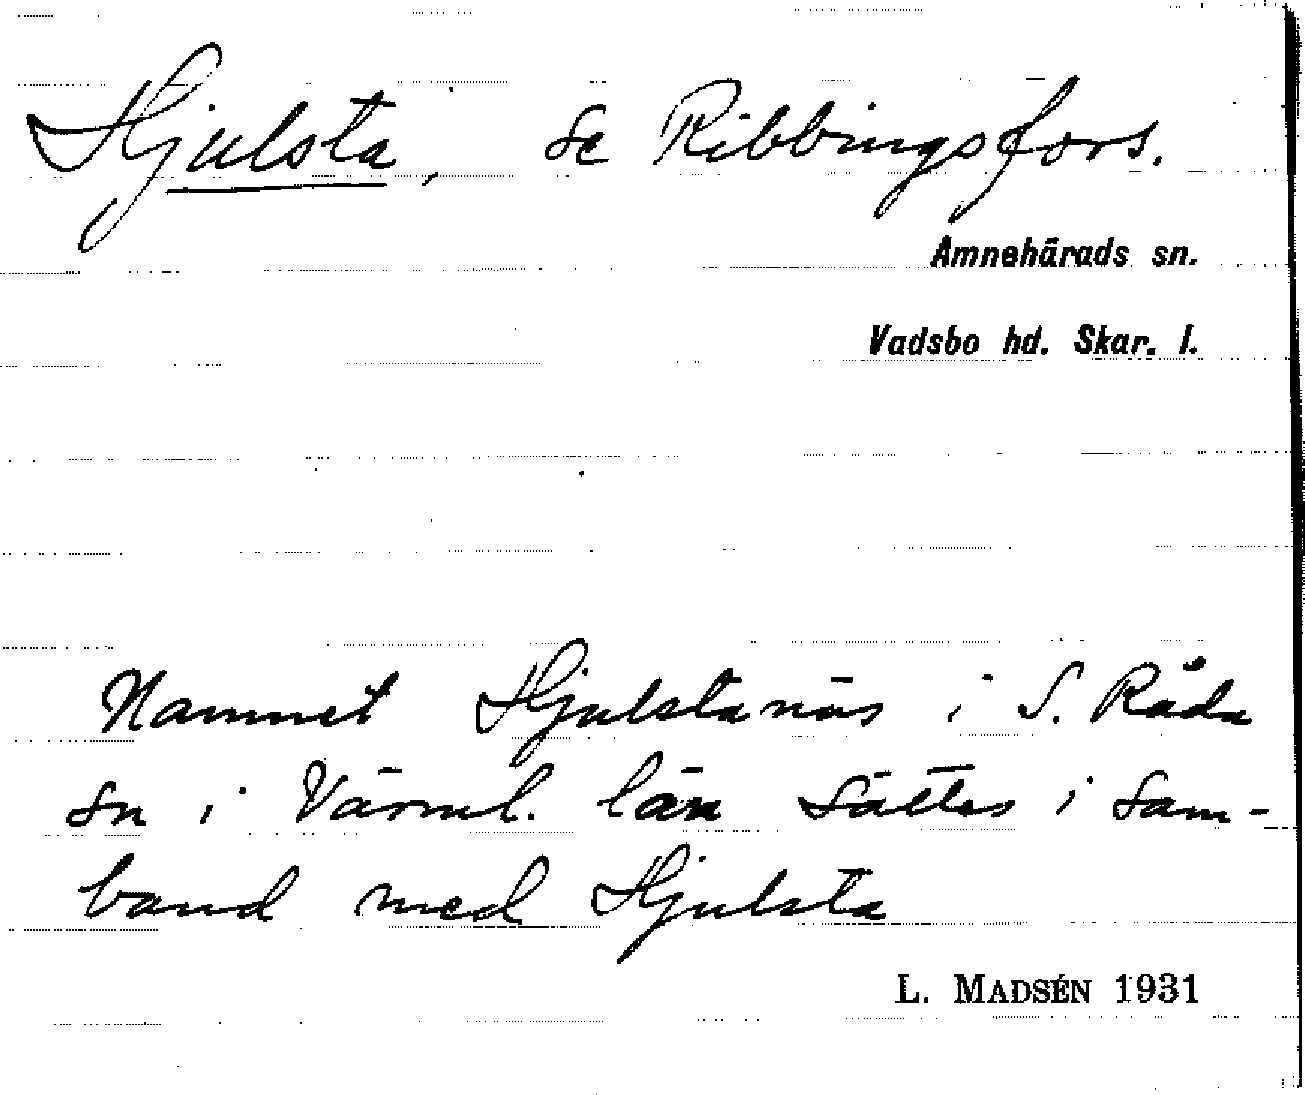 Hjulsta, Se Ribbingsfors.
Amnehärads sn.
Vadsbo hd. Skar. l.
Namnet Hjulstanäs i S. Råda
sn i Värml. län sättes i sam-
band med Hjulsta
L. MADSÉN 1931